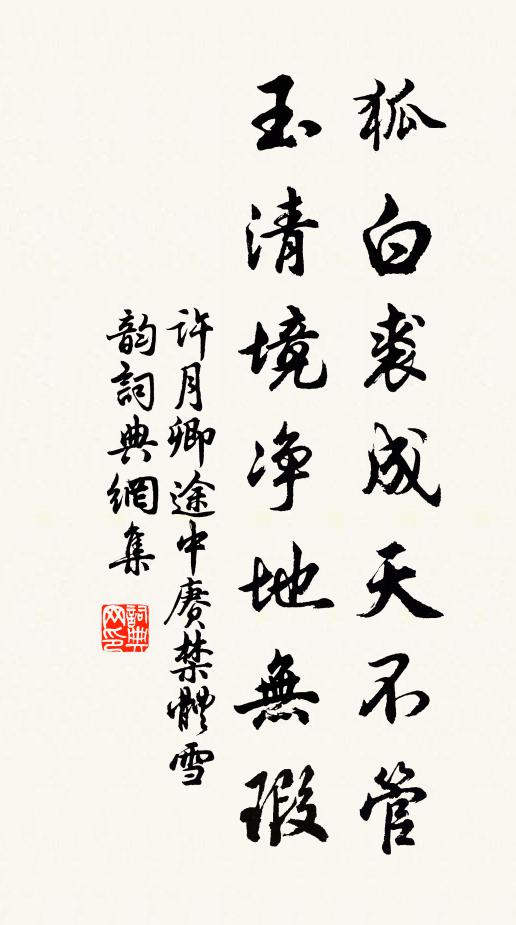 狐白裘成天不管
玉清境净地無瑕
许月卿途中赓禁體雪
韵詞典網集
詞典網印